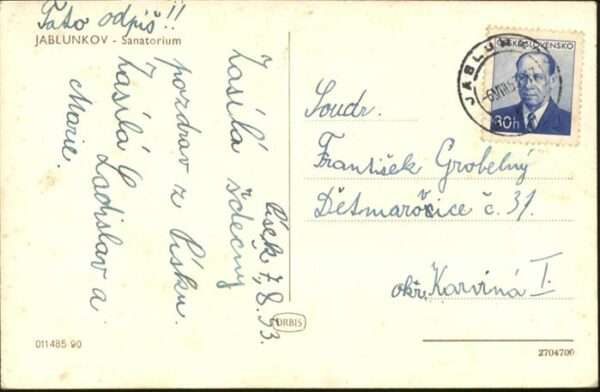 Tato odpiš!!
JABLUNKOV - Sanatorium
Písek 7, 8. 53.
Zasílá srdečný
pozdrav z Písku.
Zasílá Ladislav a
Marie.
ČESKOSLOVENSKO
30h
JABLUNKOV
Soudr.
František Grobelný
Dětmarovice č. 31.
okr. Karviná I.
ORBIS
011485 90
2704706